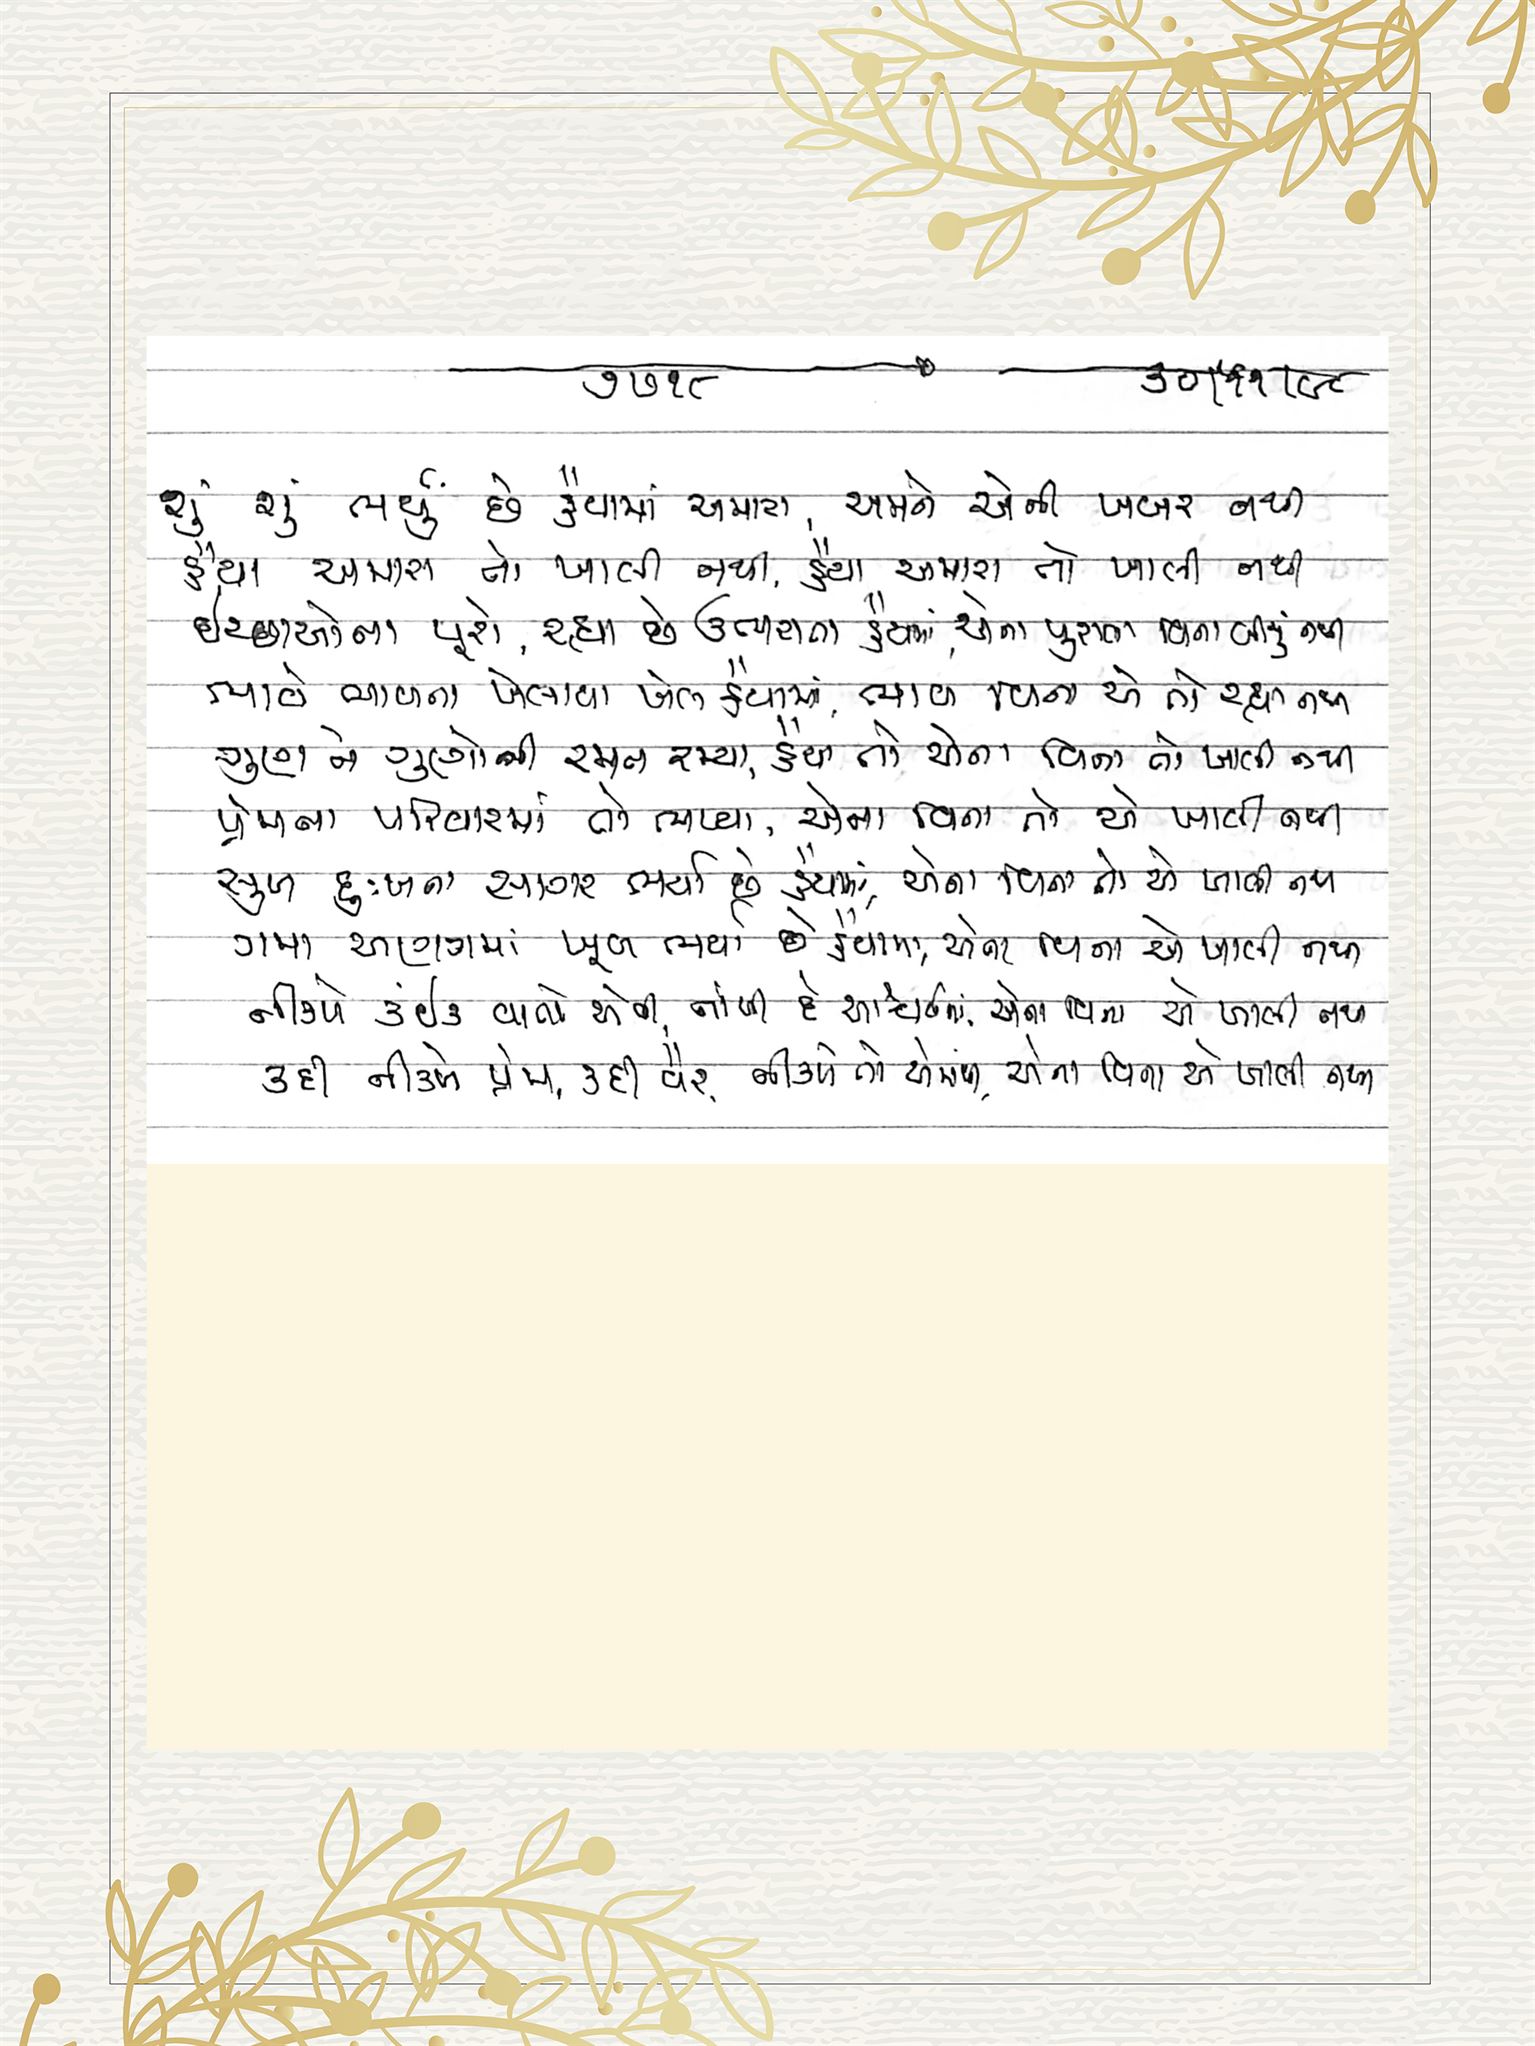 ૭૭૧૮ ૩૦/૧૧/૯૮
શું શું ભર્યું છે હૈયામાં અમારા, અમને એની ખબર નથી
હૈયા અમારા તો ખાલી નથી, હૈયા અમારા તો ખાલી નથી
ઇચ્છાઓના પૂરો, રહ્યા છે ઉભરાતા હૈયામાં, એના પુરાવા વિના બીજું નથી
ભાવે ભાવના ખેલાયા ખેલ હૈયામાં, ભાવ વિના એ તો રહ્યા નથી
ગુણો ને ગુણોની રમત રમ્યા, હૈયા તો એના વિના તો ખાલી નથી
પ્રેમના પરિવારમાં તો ભળ્યા, એના વિના તો એ ખાલી નથી
સુખ દુઃખના સાગર ભર્યા છે હૈયામાં, એના વિના તો એ ખાલી નથી
ગમા અણગમાં ખૂબ ભર્યા છે હૈયામાં, એના વિના એ ખાલી નથી
નીકળે કંઈક વાતો એવી, નાંખી દે આશ્ચર્યમાં, એના વિના એ ખાલી નથી
કદી નીકળે પ્રેમ, કદી વૈર, નીકળે તો એમાંથી, એના વિના એ ખાલી નથી